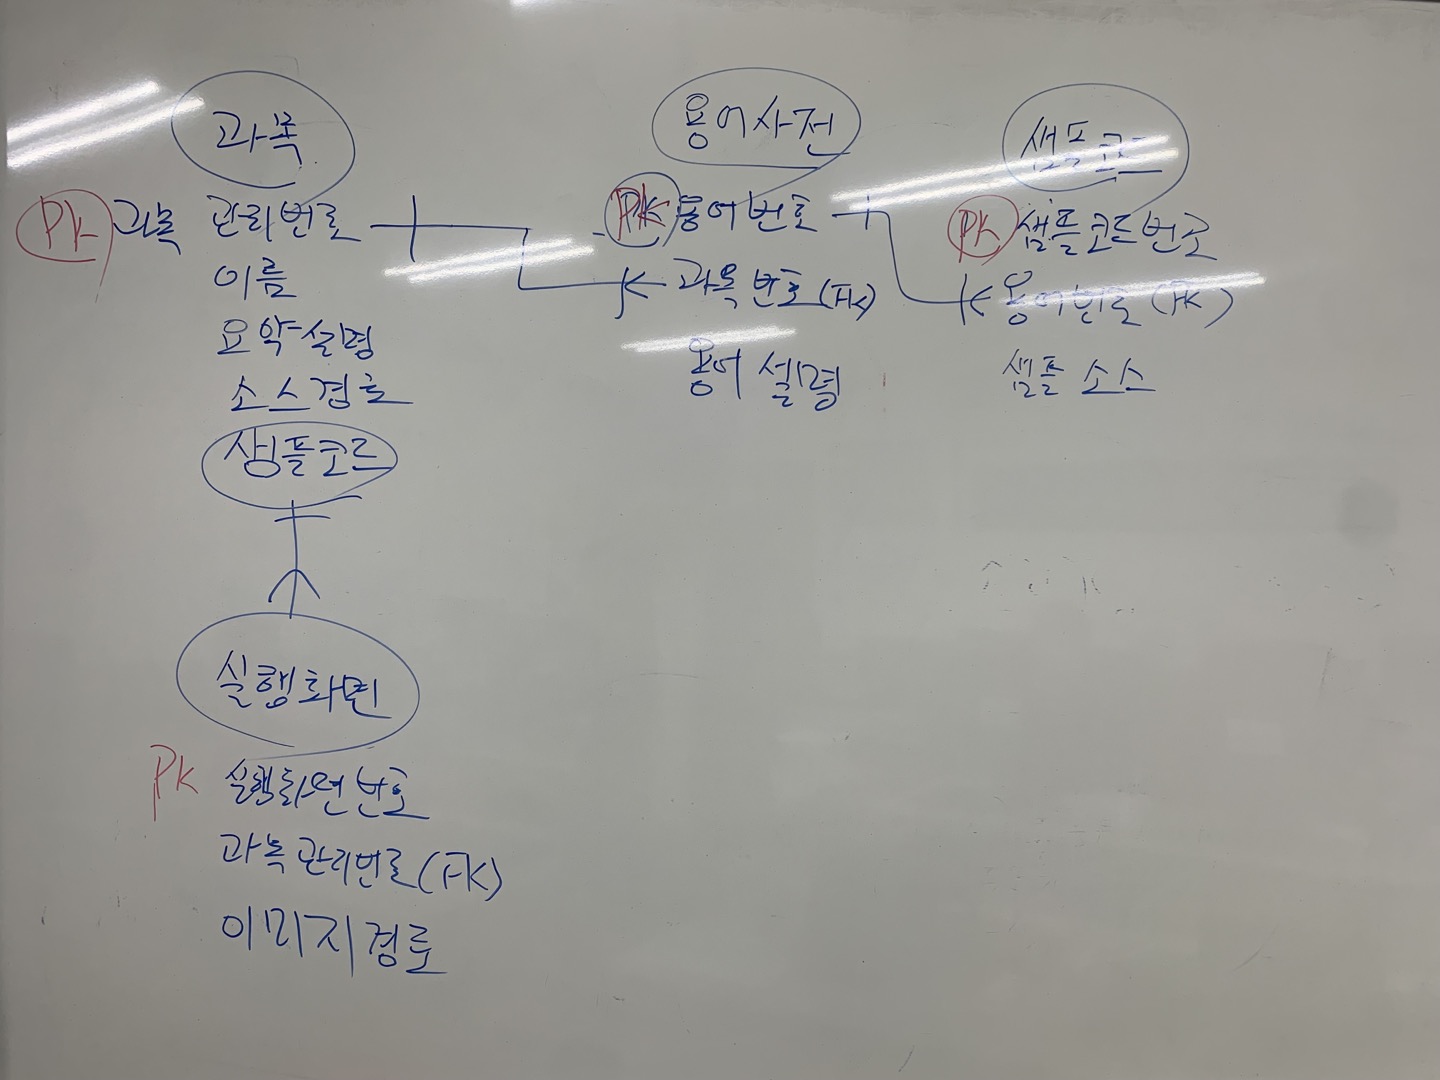 과목
PK 과목 관리번호
이름
요약설명
소스경로
샘플코드
실행화면
PK 실행화면 번호
과목관리번호(FK)
이미지경로
용어사전
PK 용어번호
과목번호(FK)
용어 설명
샘플코드
PK 샘플코드번호
용어번호(FK)
샘플 소스